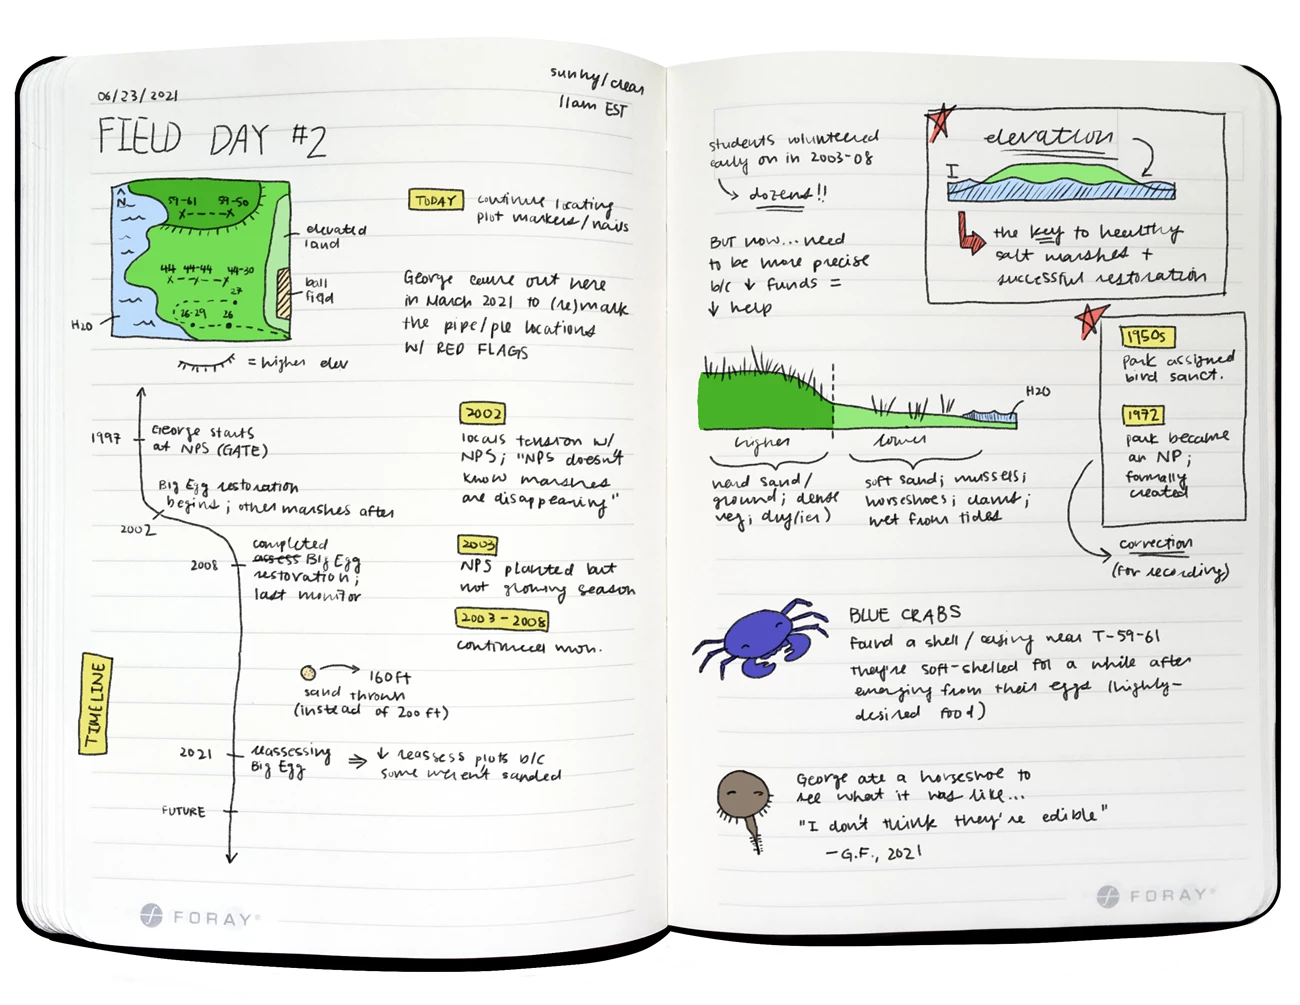 06/23/2021
sunny/clear
11am EST
FIELD DAY #2
N
59-61 59-50
44 44-44 44-30
27
26-29 26
H2O
elevated
land
ball
field
= higher elev
TODAY
continue locating
plot markers/nails
George came out here
in March 2021 to (re)mark
the pipe/ple locations
W/ RED FLAGS
TIMELINE
1997
George starts
at NPS (GATE)
Big Egg restoration
begins; other marshes after
2002
2008
completed
assess Big Egg
restoration;
last monitor
160ft
sand thrown
(instead of 200ft)
2021
reassessing
Big Egg
⇒ ↓ reassess plots b/c
some weren't sanded
FUTURE
2002
locals tension w/
NPS; "NPS doesn't
know marshes
are disappearing"
2003
NPS planted but
not growing season
2003-2008
continued mon.
FORAY
students volunteered
early on in 2003-08
dozens!!
BUT now... need
to be more precise
b/c ↓ funds =
↓ help
elevation
I
the key to healthy
salt marshes +
successful restoration
1950s
park assigned
bird sanct.
1972
park became
an NP;
formally
created
correction
(for recording)
H2O
higher
lower
hard sand/
ground; dense
veg; dry(ier)
soft sand; mussels;
horseshoes; clams;
wet from tides
BLUE CRABS
Found a shell/casing near T-59-61
they're soft-shelled for a while after
emerging from their eggs (highly-
desired food)
George ate a horseshoe to
see what it was like...
"I don't think they're edible"
- G.F., 2021
FORAY